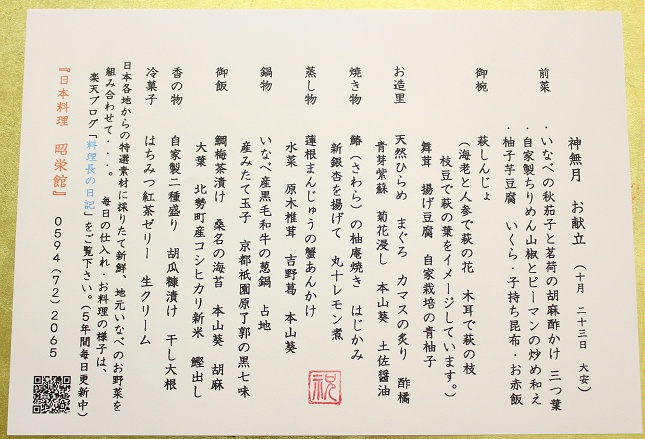 神無月　お献立　（十月　二十三日　大安）
前菜　・いなべの秋茄子と茗荷の胡麻酢かけ　三つ葉
・自家製ちりめん山椒とピーマンの炒め和え
・柚子芋豆腐　いくら・子持ち昆布・お赤飯
御椀　萩しんじょ
（海老と人参で萩の花　木耳で萩の枝
枝豆で萩の葉をイメージしています。）
舞茸　揚げ豆腐　自家栽培の青柚子
お造里　天然ひらめ　まぐろ　カマスの炙り　酢橘
青芽紫蘇　菊花浸し　本山葵　土佐醤油
焼き物　鰆（さわら）の柚庵焼き　はじかみ
新銀杏を揚げて　丸十レモン煮
蒸し物　蓮根まんじゅうの蟹あんかけ
水菜　原木椎茸　吉野葛　本山葵
鍋物　いなべ産黒毛和牛の葱鍋　占地
産みたて玉子　京都祇園原了郭の黒七味
御飯　鯛梅茶漬け　桑名の海苔　本山葵　胡麻
大葉　北勢町産コシヒカリ新米　鰹出し
香の物　自家製二種盛り　胡瓜糠漬け　干し大根
冷菓子　はちみつ紅茶ゼリー　生クリーム
日本各地からの特選素材に採りたて新鮮、地元いなべのお野菜を
組み合わせて・・・。　毎日の仕入れ・お料理の様子は、
楽天ブログ「料理長の日記」をご覧下さい。（５年間毎日更新中）
『日本料理　昭栄館』　０５９４（７２）２０６５
祝